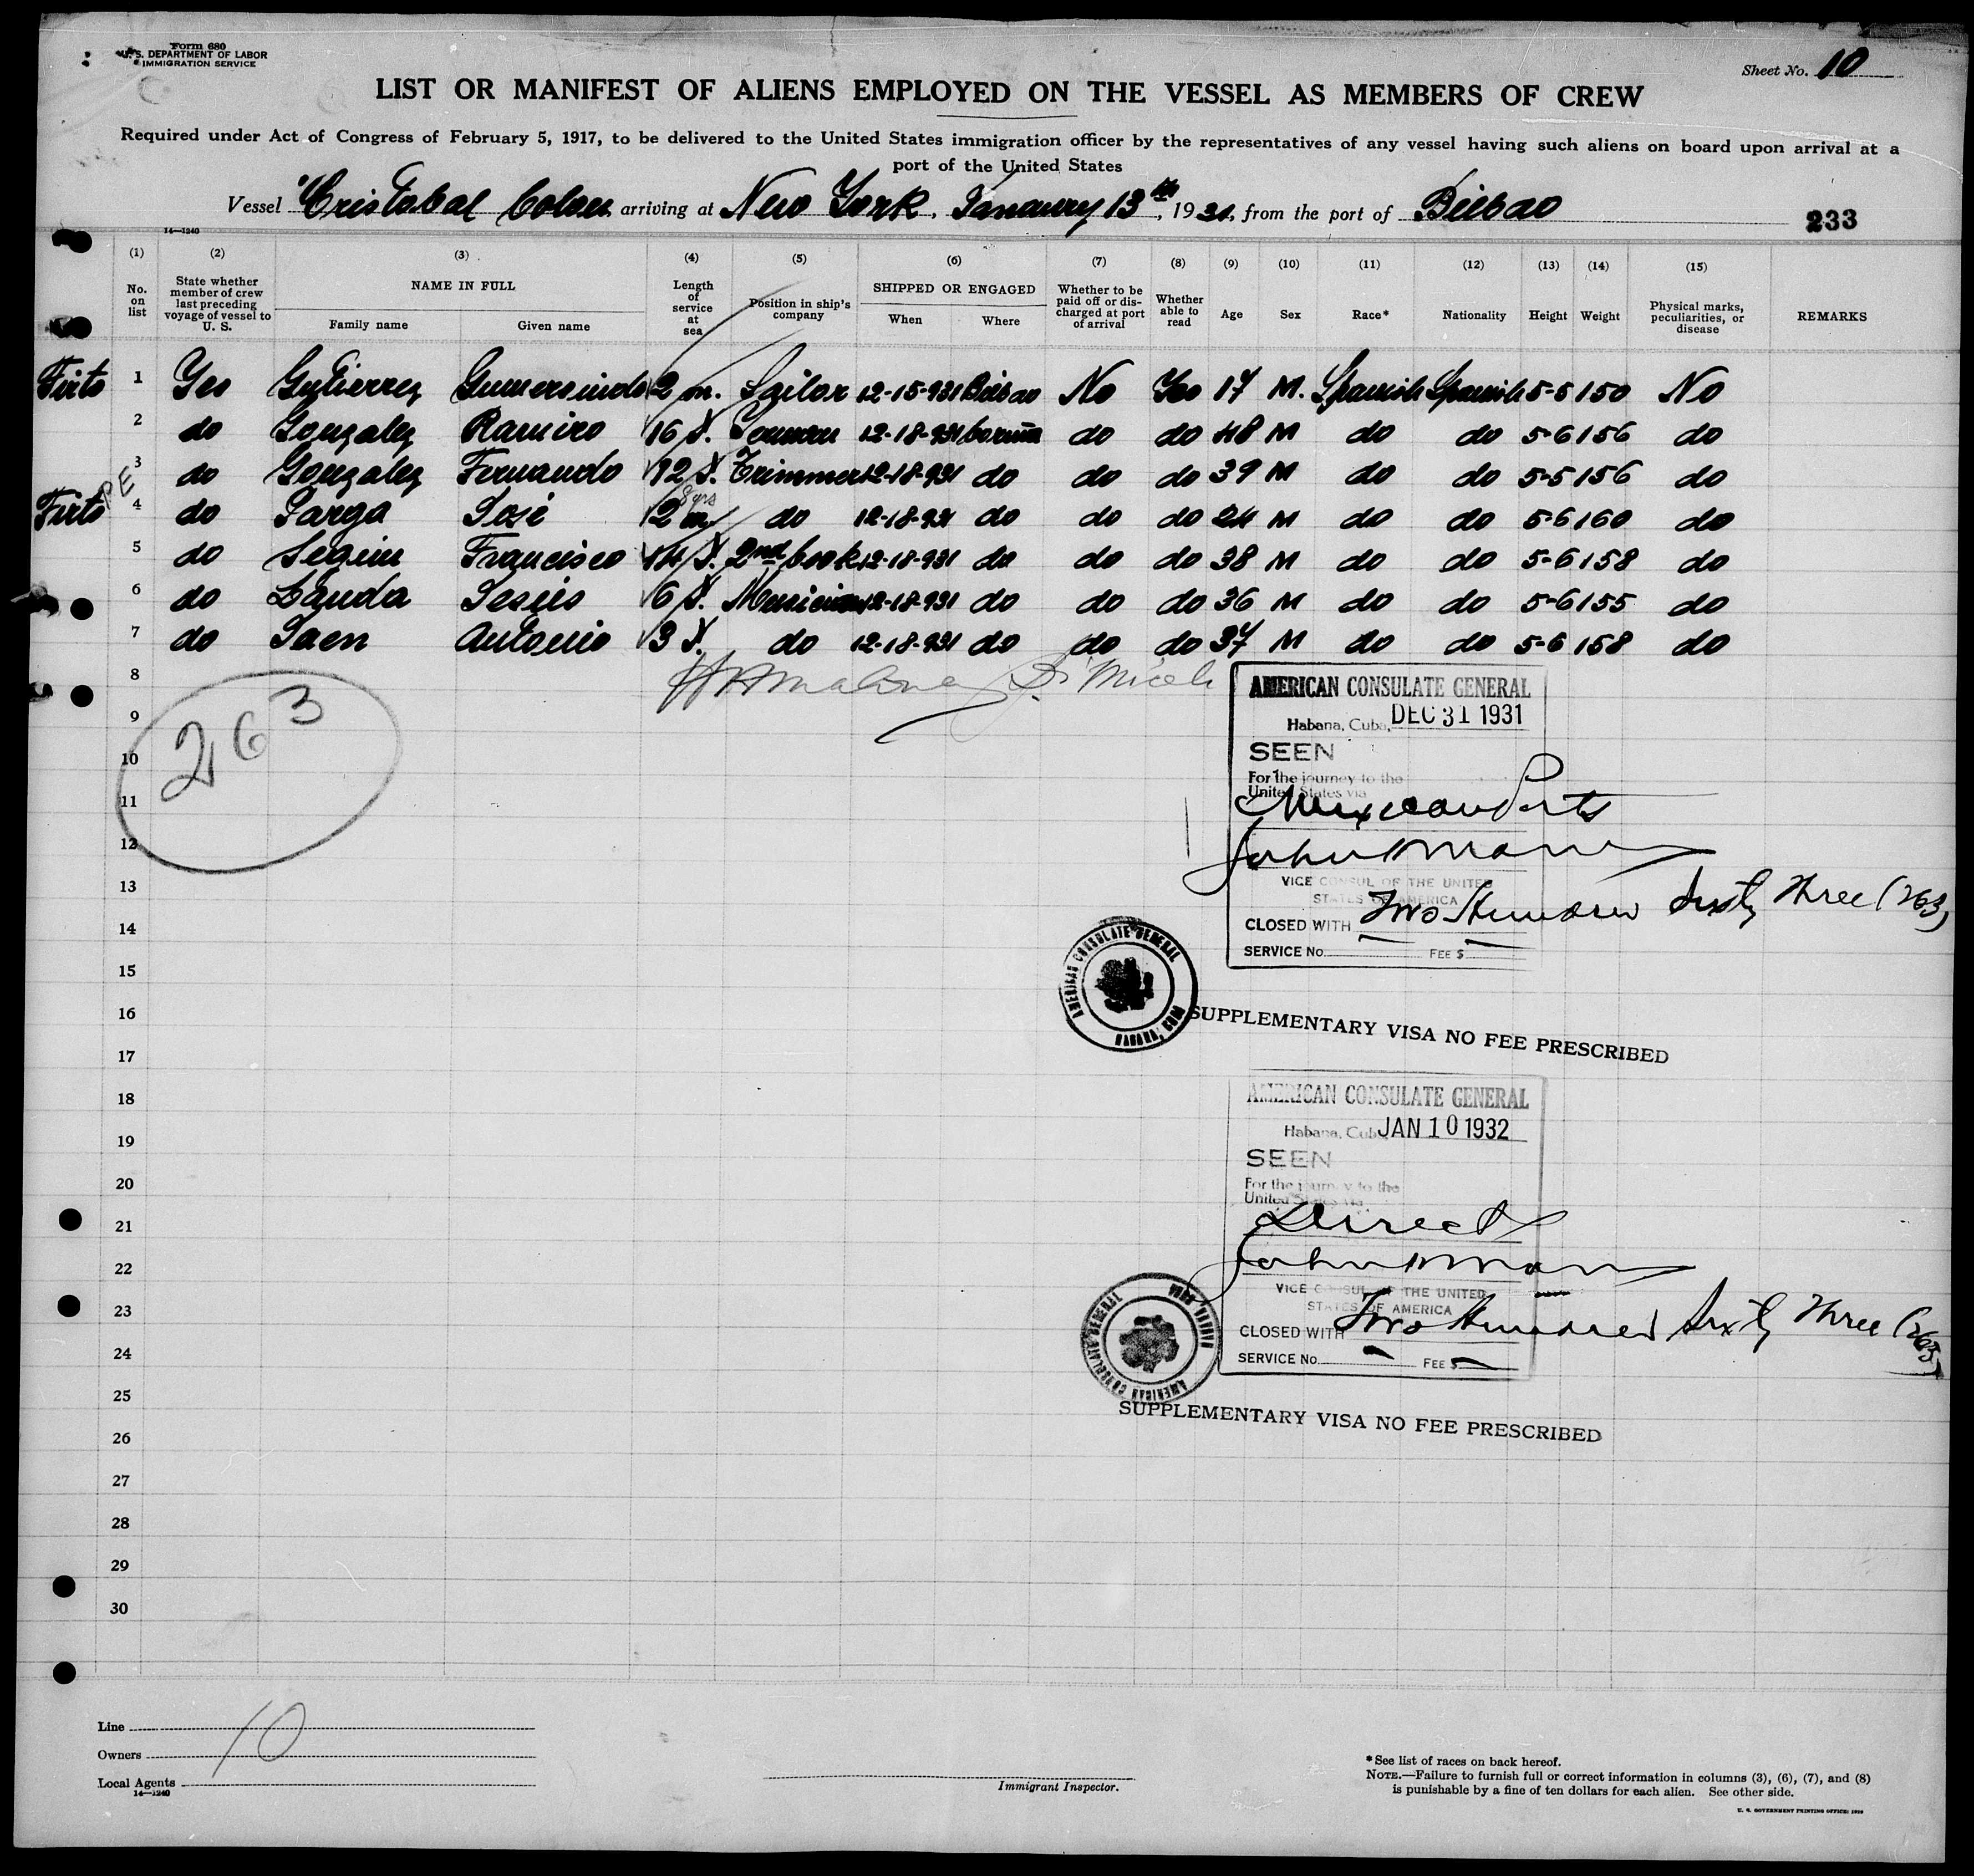 Form 680
U. S. DEPARTMENT OF LABOR
IMMIGRATION SERVICE
Sheet No. 10
LIST OR MANIFEST OF ALIENS EMPLOYED ON THE VESSEL AS MEMBERS OF CREW
Required under Act of Congress of February 5, 1917, to be delivered to the United States immigration officer by the representatives of any vessel having such aliens on board upon arrival at a
port of the United States
Vessel "Cristobal Colon arriving at New York, January 13th, 1931, from the port of Bilbao
233
14—1240
(1) (2) (3) (4) (5) (6) (7) (8) (9) (10) (11) (12) (13) (14) (15)
No. on list
State whether member of crew last preceding voyage of vessel to U. S.
NAME IN FULL
Family name Given name
Length of service at sea
Position in ship's company
SHIPPED OR ENGAGED
When Where
Whether to be paid off or discharged at port of arrival
Whether able to read
Age Sex Race* Nationality Height Weight
Physical marks, peculiarities, or disease
REMARKS
Firts 1 Yes Gutierrez Gumersindo 2 m. Sailor 12-15-931 Bilbao No Yes 17 M. Spanish Spanish 5-5 150 No
2 do Gonzalez Ramiro 16 Y. 12-18-931 Coruña do do 48 M do do 5-6 156 do
3 do Gonzalez Fernando 12 Y. Trimmer 12-18-931 do do do 39 M do do 5-5 156 do
Firts 4 do José 2 m 8 yrs do 12-18-931 do do do 24 M do do 5-6 160 do
5 do Francisco 14 Y. 2nd Cook 12-18-931 do do do 38 M do do 5-6 158 do
6 do Landa Jesús 6 Y. Musician 12-18-931 do do do 36 M do do 5-6 155 do
7 do Antonio 3 Y. do 12-18-931 do do do 37 M do do 5-6 158 do
8
9
10
11
12
13
14
15
16
17
18
19
20
21
22
23
24
25
26
27
28
29
30
263
AMERICAN CONSULATE GENERAL
Habana, Cuba, DEC 31 1931
SEEN
For the journey to the
United States via
Mexican Ports
VICE CONSUL OF THE UNITED
STATES OF AMERICA
CLOSED WITH Two Hundred Sixty Three (263)
SERVICE No. FEE $
AMERICAN CONSULATE GENERAL
HABANA, CUBA
SUPPLEMENTARY VISA NO FEE PRESCRIBED
AMERICAN CONSULATE GENERAL
Habana, Cuba JAN 10 1932
SEEN
For the journey to the
United States via
Direct
VICE CONSUL OF THE UNITED
STATES OF AMERICA
CLOSED WITH Two Hundred Sixty Three (263)
SERVICE No. FEE $
AMERICAN CONSULATE GENERAL
HABANA, CUBA
SUPPLEMENTARY VISA NO FEE PRESCRIBED
Line
10
Owners
Local Agents
14—1240
Immigrant Inspector.
*See list of races on back hereof.
NOTE.—Failure to furnish full or correct information in columns (3), (6), (7), and (8)
is punishable by a fine of ten dollars for each alien. See other side.